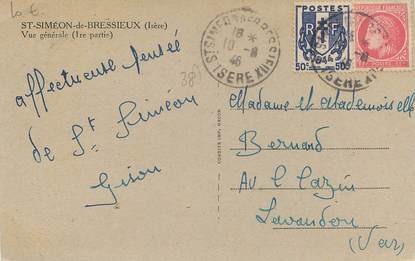 10 €
ST-SIMÉON-de-BRESSIEUX (Isère)
Vue générale (1re partie)
affectueuse pensée
de St Siméon
38
ISERE
18 *
10 - 8
46
POSTES
RF
50c 50c
Madame et Mademoiselle
Bernard
Av l Cazin
Lavandou
(Var)